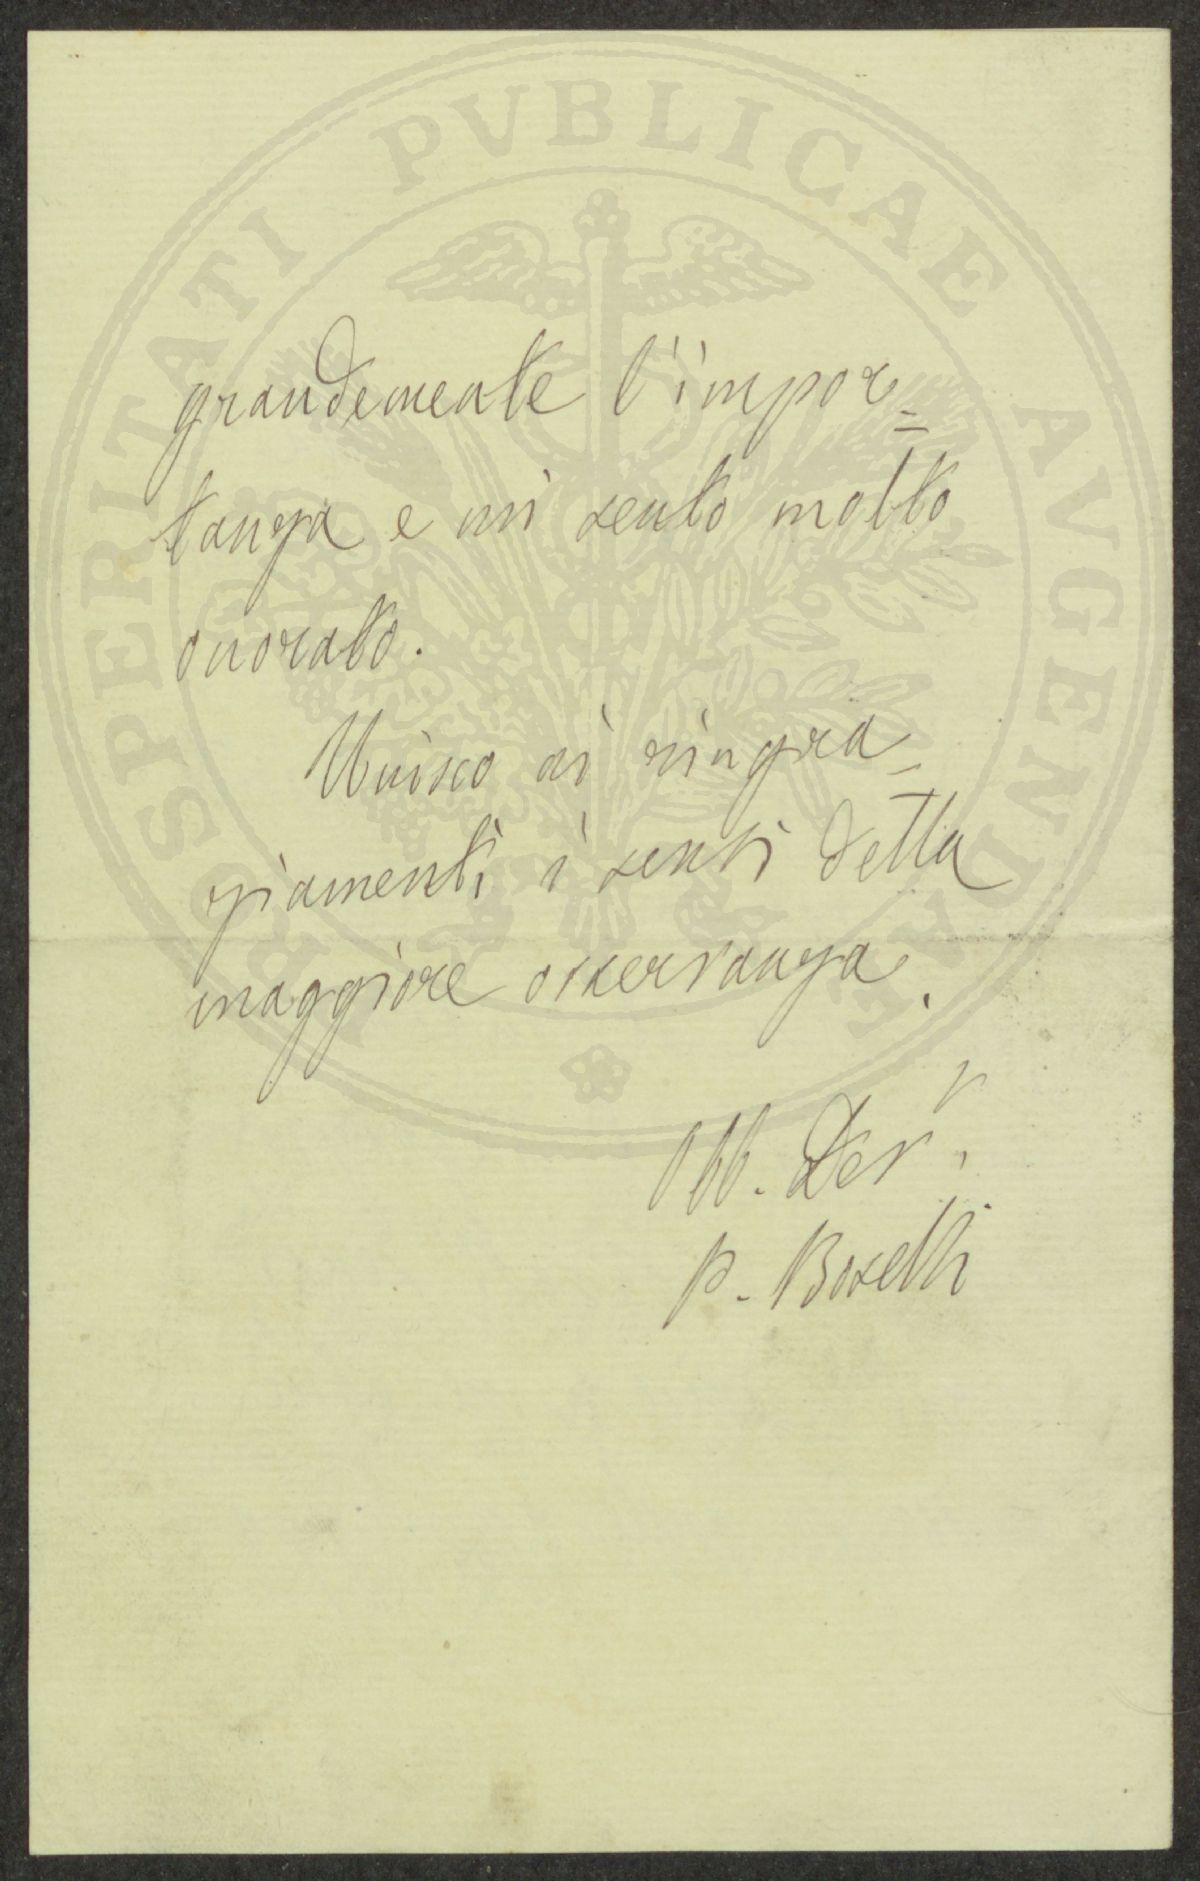 PROSPERITATI PVBLICAE AVGENDAE
grandemente l'impor=
tanza e mi sento molto
onorato.
Unisco ai ringra_
ziamenti i sensi della
maggiore osservanza.
Obb. Dev.
P. Boselli